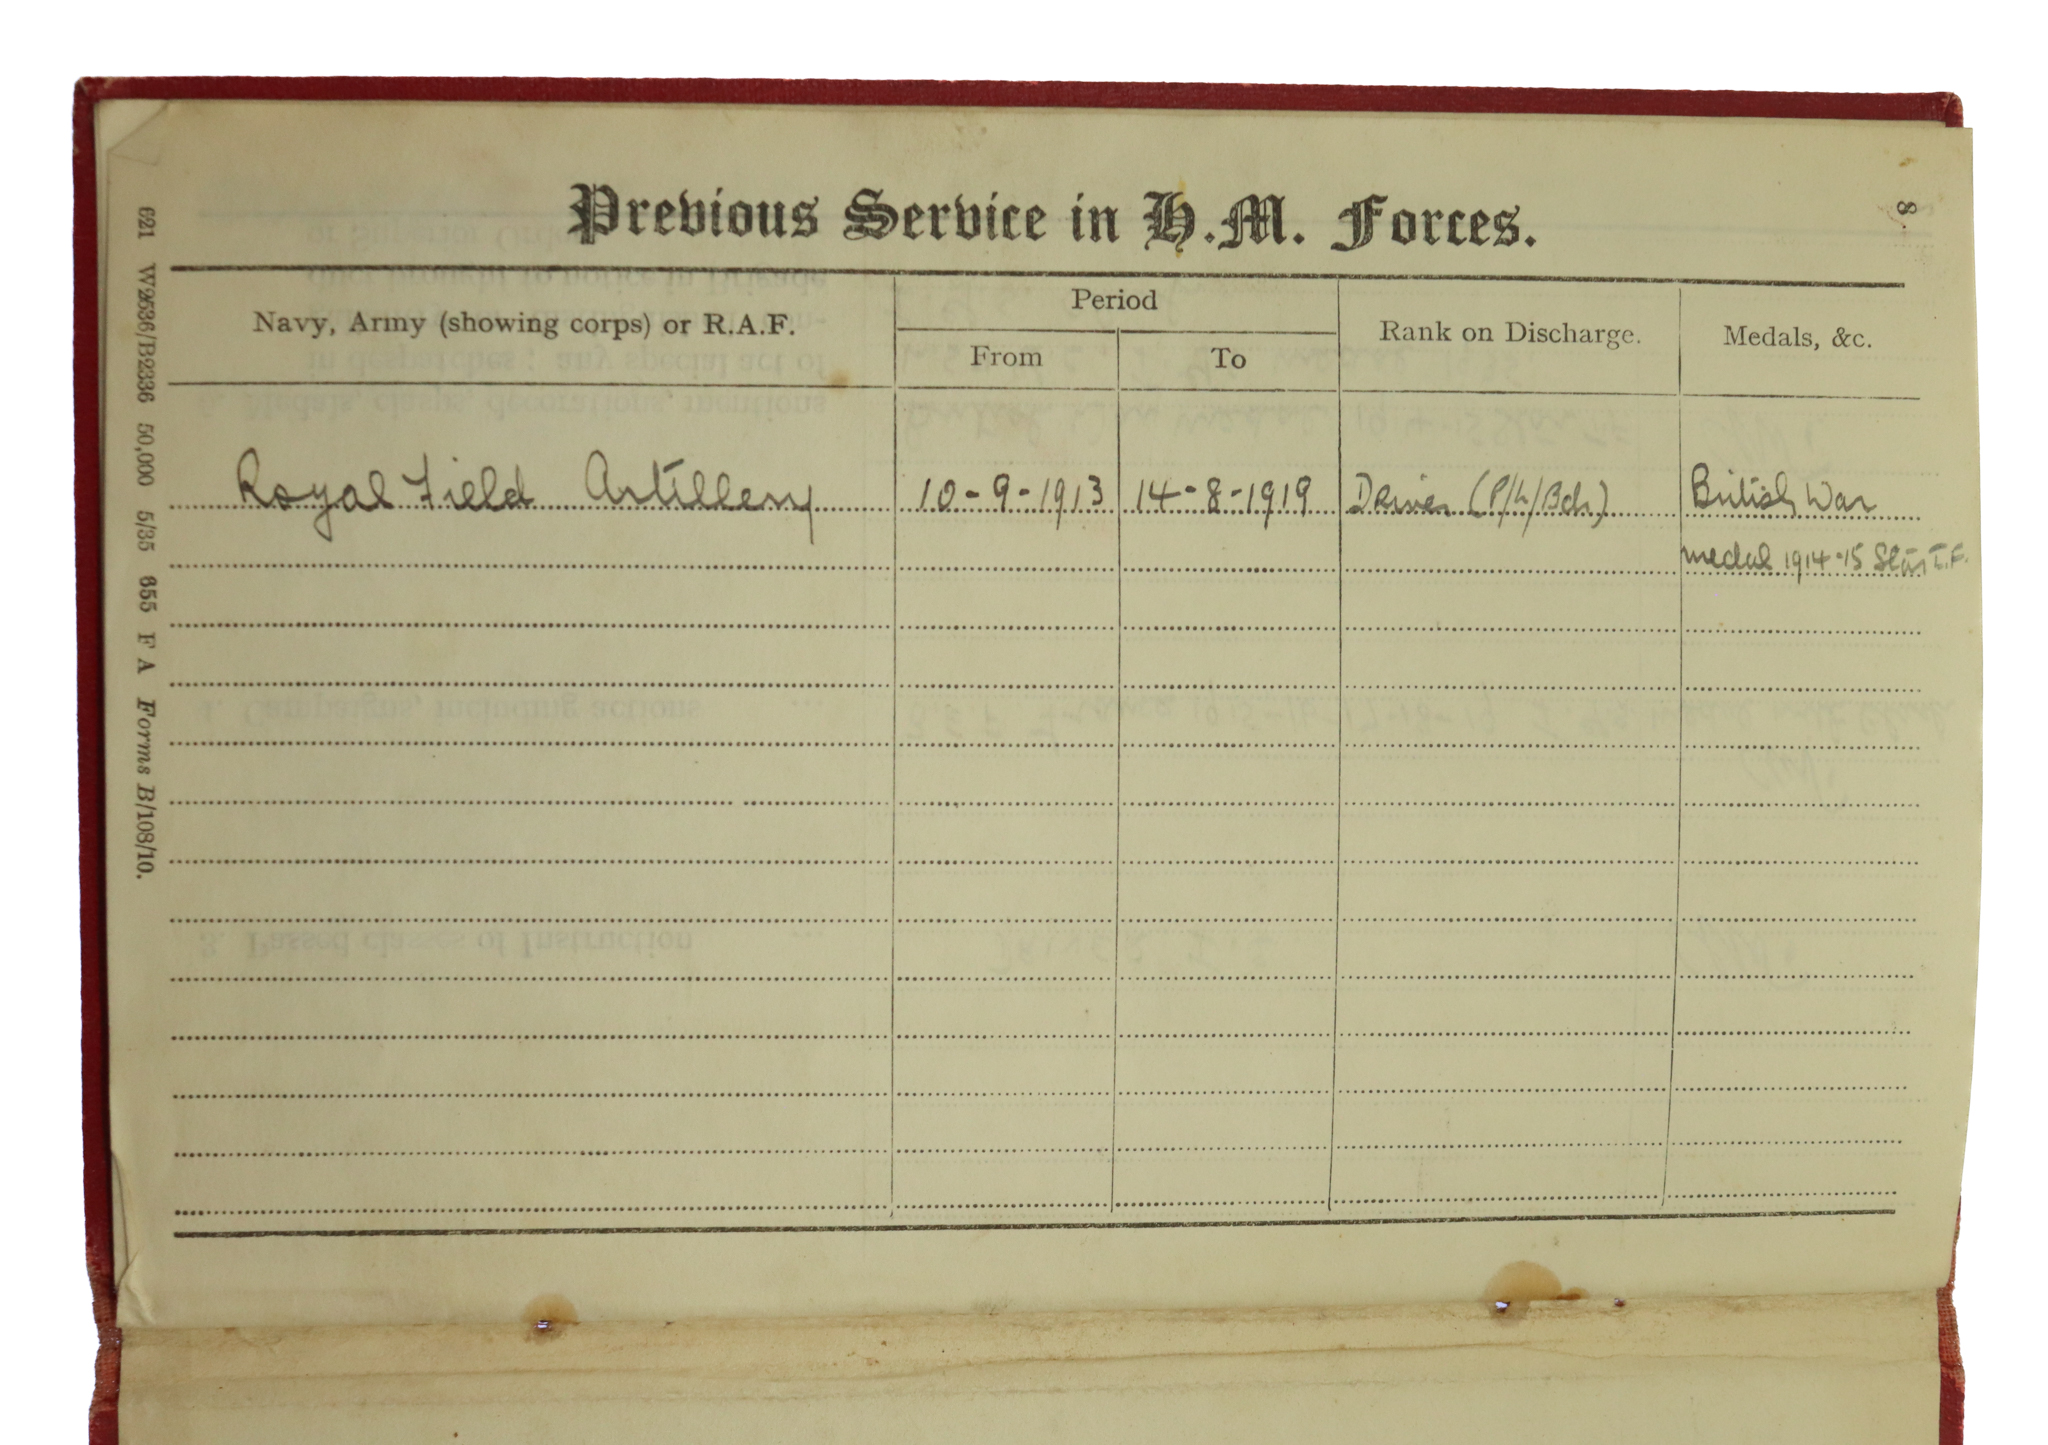 8
Previous Service in H.M. Forces.
Navy, Army (showing corps) or R.A.F.
Period
From
To
Rank on Discharge.
Medals, &c.
Royal Field Artillery 10-9-1913 14-8-1919 Driver (P/L/Bdr) British War
medal 1914-15 Star T.F.
621 W2636/B2336 50,000 5/35 655 F A Forms B/108/10.